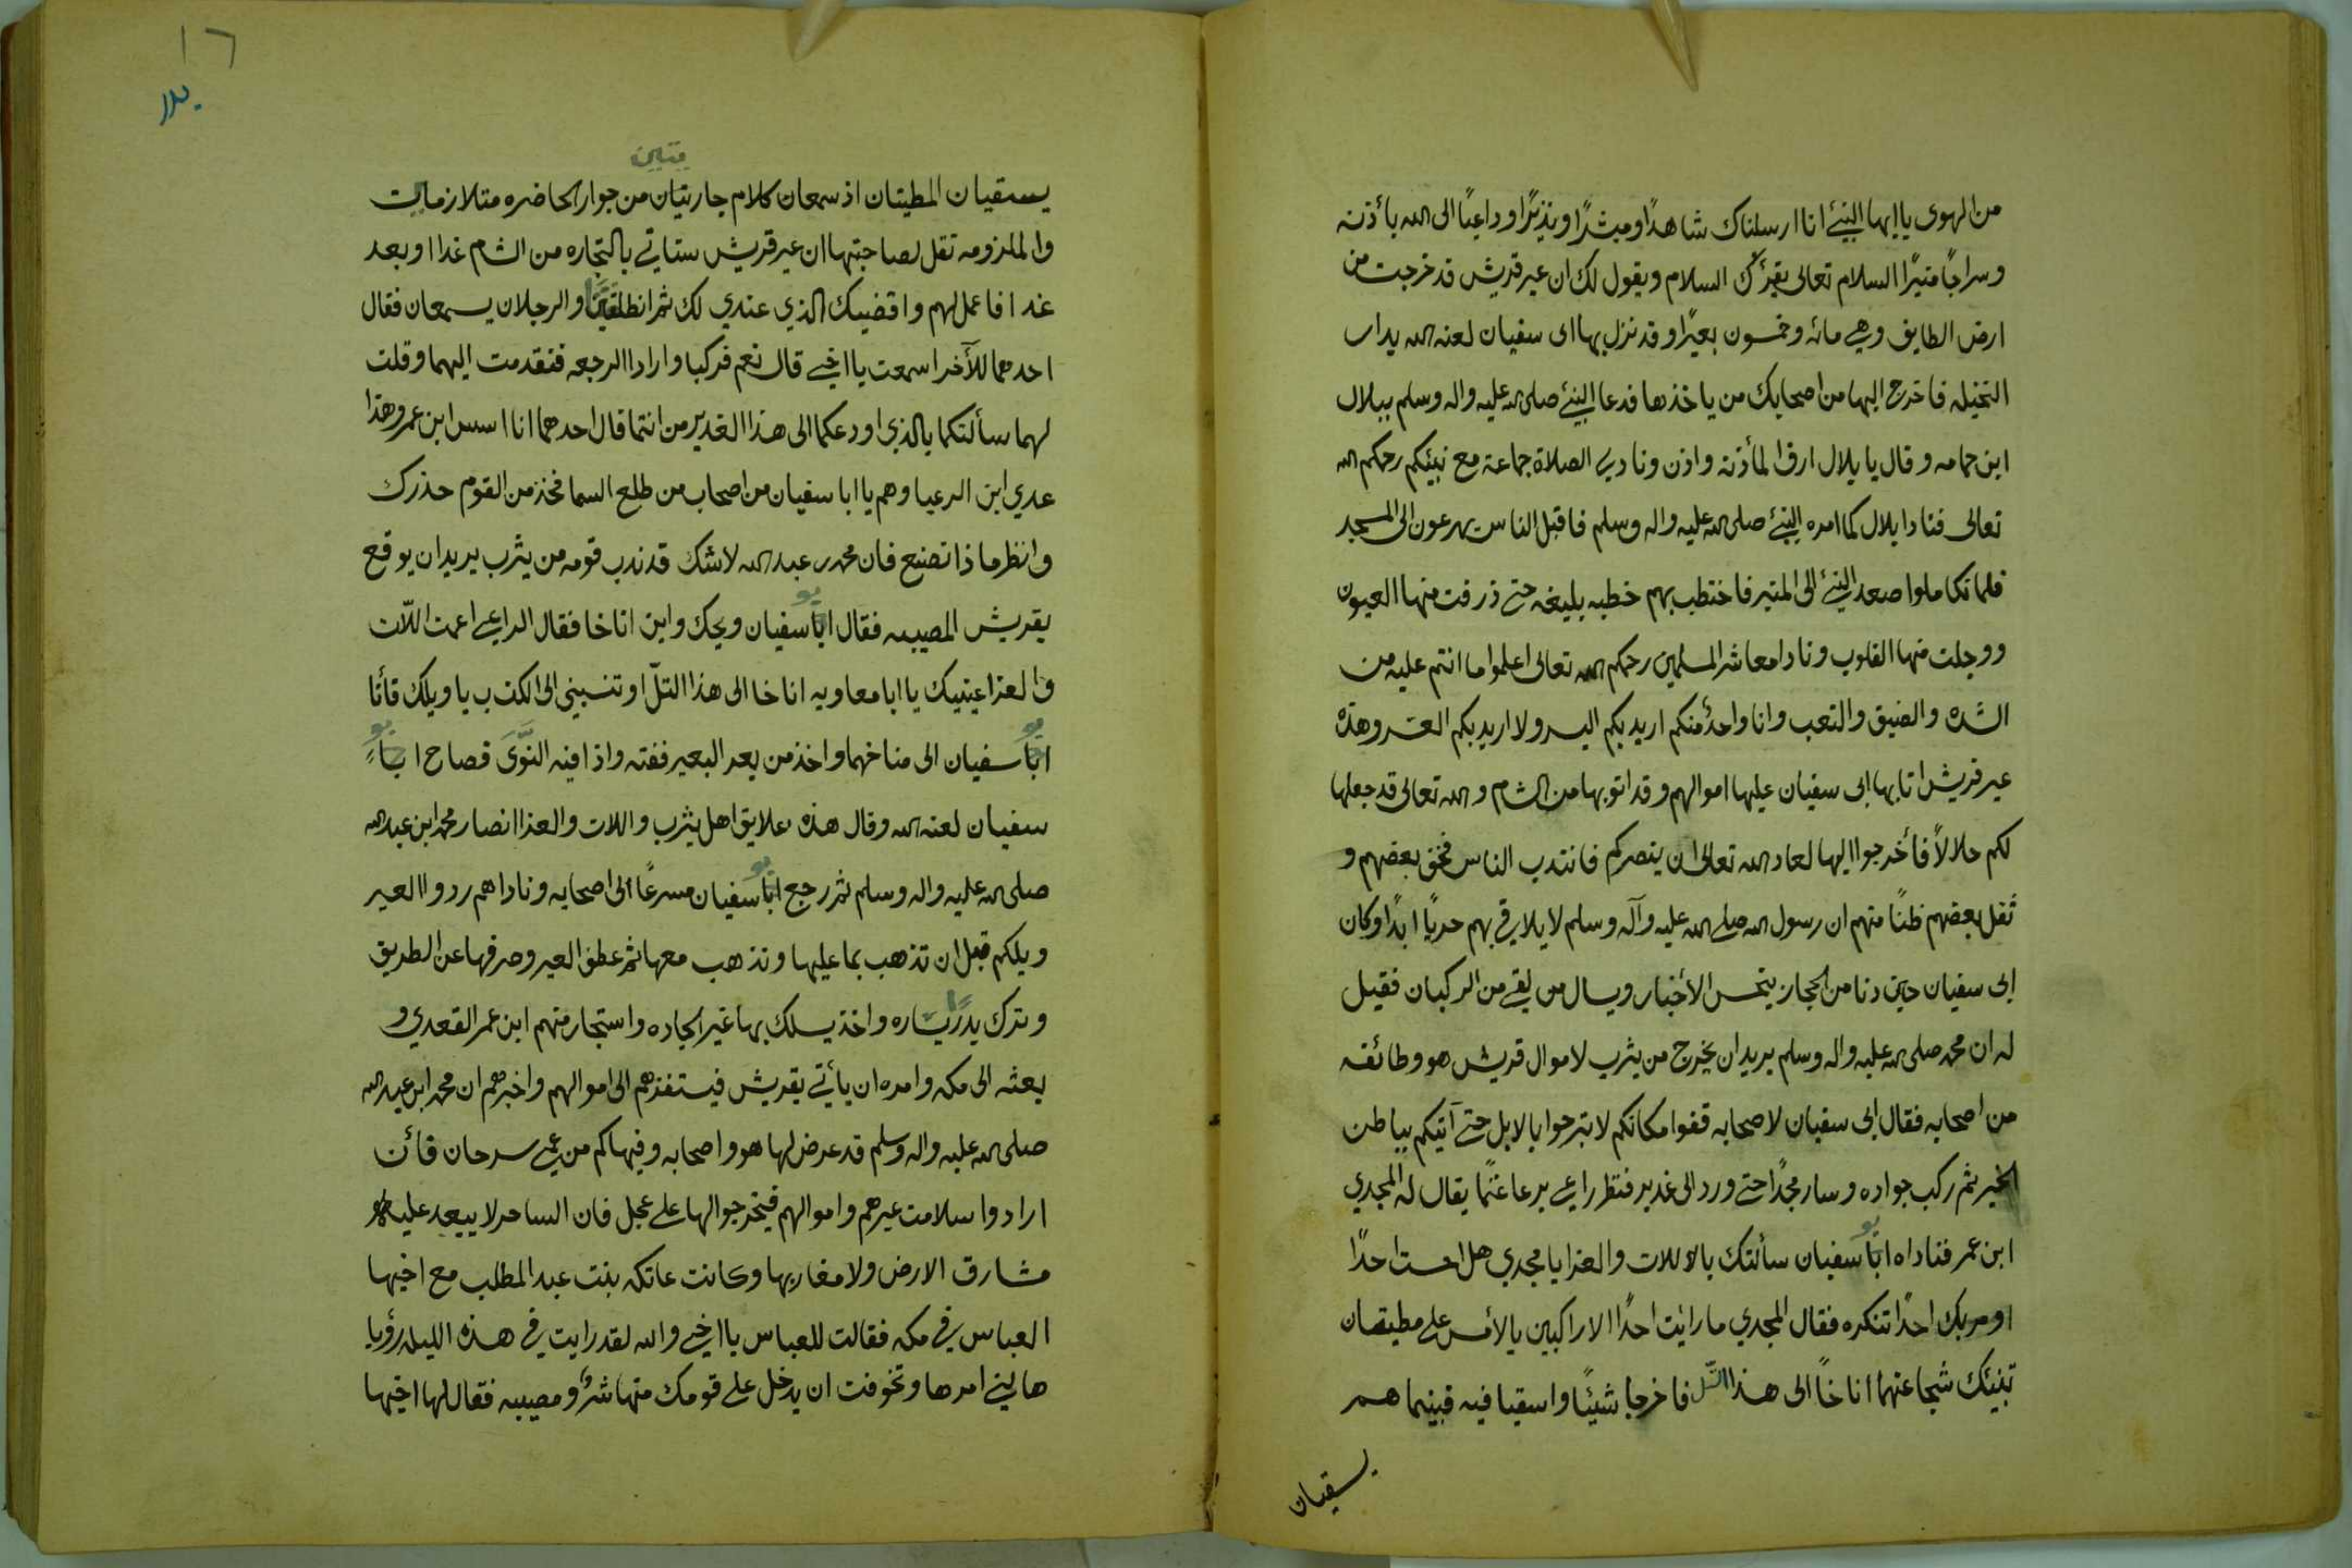 من الهوى يا ايها النبئ انا ارسلناك شاهدًا ومبشرًا ونذيرًا وداعيًا الى الله بأذنه
وسراجًا منيرًا السلام تعالى يقرئك السلام ويقول لك ان عير قريش قد خرجت من
ارض الطايف وهي مائه وخمسون بعيرًا وقد نزل بها ابى سفيان لعنه الله يداب
النخيله فاخرج اليها من اصحابك من ياخذها فدعا النبئ صلى الله عليه واله وسلم ببلال
ابن حمامه وقال يا بلال ارق المأذنه واذن ونادي الصلاة جماعة مع نبيئكم رحمكم الله
تعالى فنادا بلال كما امره النبئ صلى الله عليه واله وسلم فاقبل الناس يهرعون الى المسجد
فلما تكاملوا صعد النبئ الى المنبر فاختطب بهم خطبه بليغه حتى ذرفت منها العيون
ووجلت منها القلوب ونادا معاشر المسلمين رحمكم الله تعالى اعلموا ما انتم عليه من
الشده والضيق والتعب وانا واحدٌ منكم اريد بكم اليسر ولا اريد بكم العسر وهذه
عير قريش اتا بها ابى سفيان عليها اموالهم وقد اتو بها من الشام والله تعالى قد جعلها
لكم حلالاً فأخرجوا اليها لعاد الله تعالى ان ينصركم فانتدب الناس فخف بعضهم و
ثقل بعضهم ظنًا منهم ان رسول الله صلى الله عليه وآله وسلم لا يلاقي بهم حربًا ابدًا وكان
ابى سفيان حين دنا من الحجاز يتحسس الأخبار ويسال من لقي من الركبان فقيل
له ان محمد صلى الله عليه واله وسلم يريد ان يخرج من يثرب لاموال قريش هو وطائفه
من اصحابه فقال ابى سفيان لاصحابه قفوا مكانكم لا تبرحوا بالابل حتى آتيكم بباطن
الخبر ثم ركب جواده وسار مجدًا حتى ورد الى غدير فنظر راعي يرعا غنمًا يقال له المجدي
ابن عمر فناداه ابًا سفيان سألتك بالاللات والعزا يا مجدي هل احست احدًا
او مر بك احدًا تنكره فقال المجدي ما رايت احدًا الا راكبين بالأمس على مطيتان
تنبئك شجاعتهما اناخاً الى هذا التل فاخرجا شيئًا واسقيا فيه فبينما هم
يسقيان
١٦
بدر
يتين
يسقيان المطيتان اذ سمعان كلام جاريتان من جوار الحاضره متلازمات
والملزومه تقل لصاحبتها ان عير قريش ستاتي بالتجاره من الشام غدا او بعد
غدا فاعمل لهم واقضيك الذي عندي لك ثم انطلقتا والرجلان يسمعان فقال
احدهما للآخر اسمعت يا اخي قال نعم فركبا وارادا الرجعه فتقدمت اليهما وقلت
لهما سألتكما بالذي اودعكما الى هذا الغدير من انتما قال احدهما انا اسس ابن عمر وهذا
عدي ابن الرعبا وهم يا ابا سفيان من اصحاب من طلع السما فخذ من القوم حذرك
وانظر ماذا تصنع فان محمد بن عبد الله لا شك قد ندب قومه من يثرب يريد ان يوقع
بقريش المصيبه فقال ابًا سفيان ويحك واين اناخا فقال الراعي اعمت اللّات
والعزا عينيك يا ابا معاويه اناخا الى هذا التلّ او تنسبني الى الكذب يا ويلك فأتا
ابًا سفيان الى مناخهما واخذ من بعر البعير ففته واذا فيه النّوَى فصاح ابا
سفيان لعنه الله وقال هذه علايق اهل يثرب واللات والعزا انصار محمد ابن عبد الله
صلى الله عليه واله وسلم ثم رجع ابًا سفيان مسرعًا الى اصحابه وناداهم ردوا العير
ويلكم قبل ان تذهب بما عليها وتذهب معها ثم عطف العير وصرفها عن الطريق
وترك بدرًا يساره واخذ يسلك بها غير الجاده واستجار منهم ابن عمر القعدي و
بعثه الى مكه وامره ان يأتي بقريش فيستفزهم الى اموالهم واخبرهم ان محمد ابن عبد الله
صلى الله عليه واله وسلم قد عرض لها هو واصحابه وفيهاكم من عمي سرحان فأن
ارادوا سلامت عيرهم واموالهم فيخرجوا لها على عجل فان الساحر لا يبعد عليه
مشارق الارض ولا مغاربها وكانت عاتكه بنت عبد المطلب مع اخيها
العباس في مكه فقالت للعباس يا اخي والله لقد رايت في هذه الليله رؤيا
هالني امرها وتخوفت ان يدخل على قومك منها شرٌ ومصيبه فقال لها اخيها